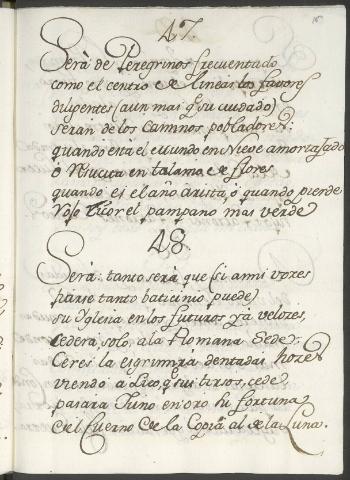 47.
Será de Peregrinos frecuentado
como el centro de lineas los favores
diligentes (aun mas q̃ su cuidado)
serán de los caminos pobladores:
quando está el mundo en Nieve amortajado
ó resucita en talamo de flores
quando es el año arista, ó quando pierde
solo licor el pampano mas verde
48.
Será: tanto será que (si a mi voz es
fiarse tanto baticinio puede)
su Yglesia en los futuros ya veloces,
cederá solo, a la Romana Sede:
Ceres la esgrimirá dentadas hozes
viendo a Lico, q̃ sus tirsos, cede
pasara Juno en oro su fortuna
del Cuerno de la Copia al de la Luna.